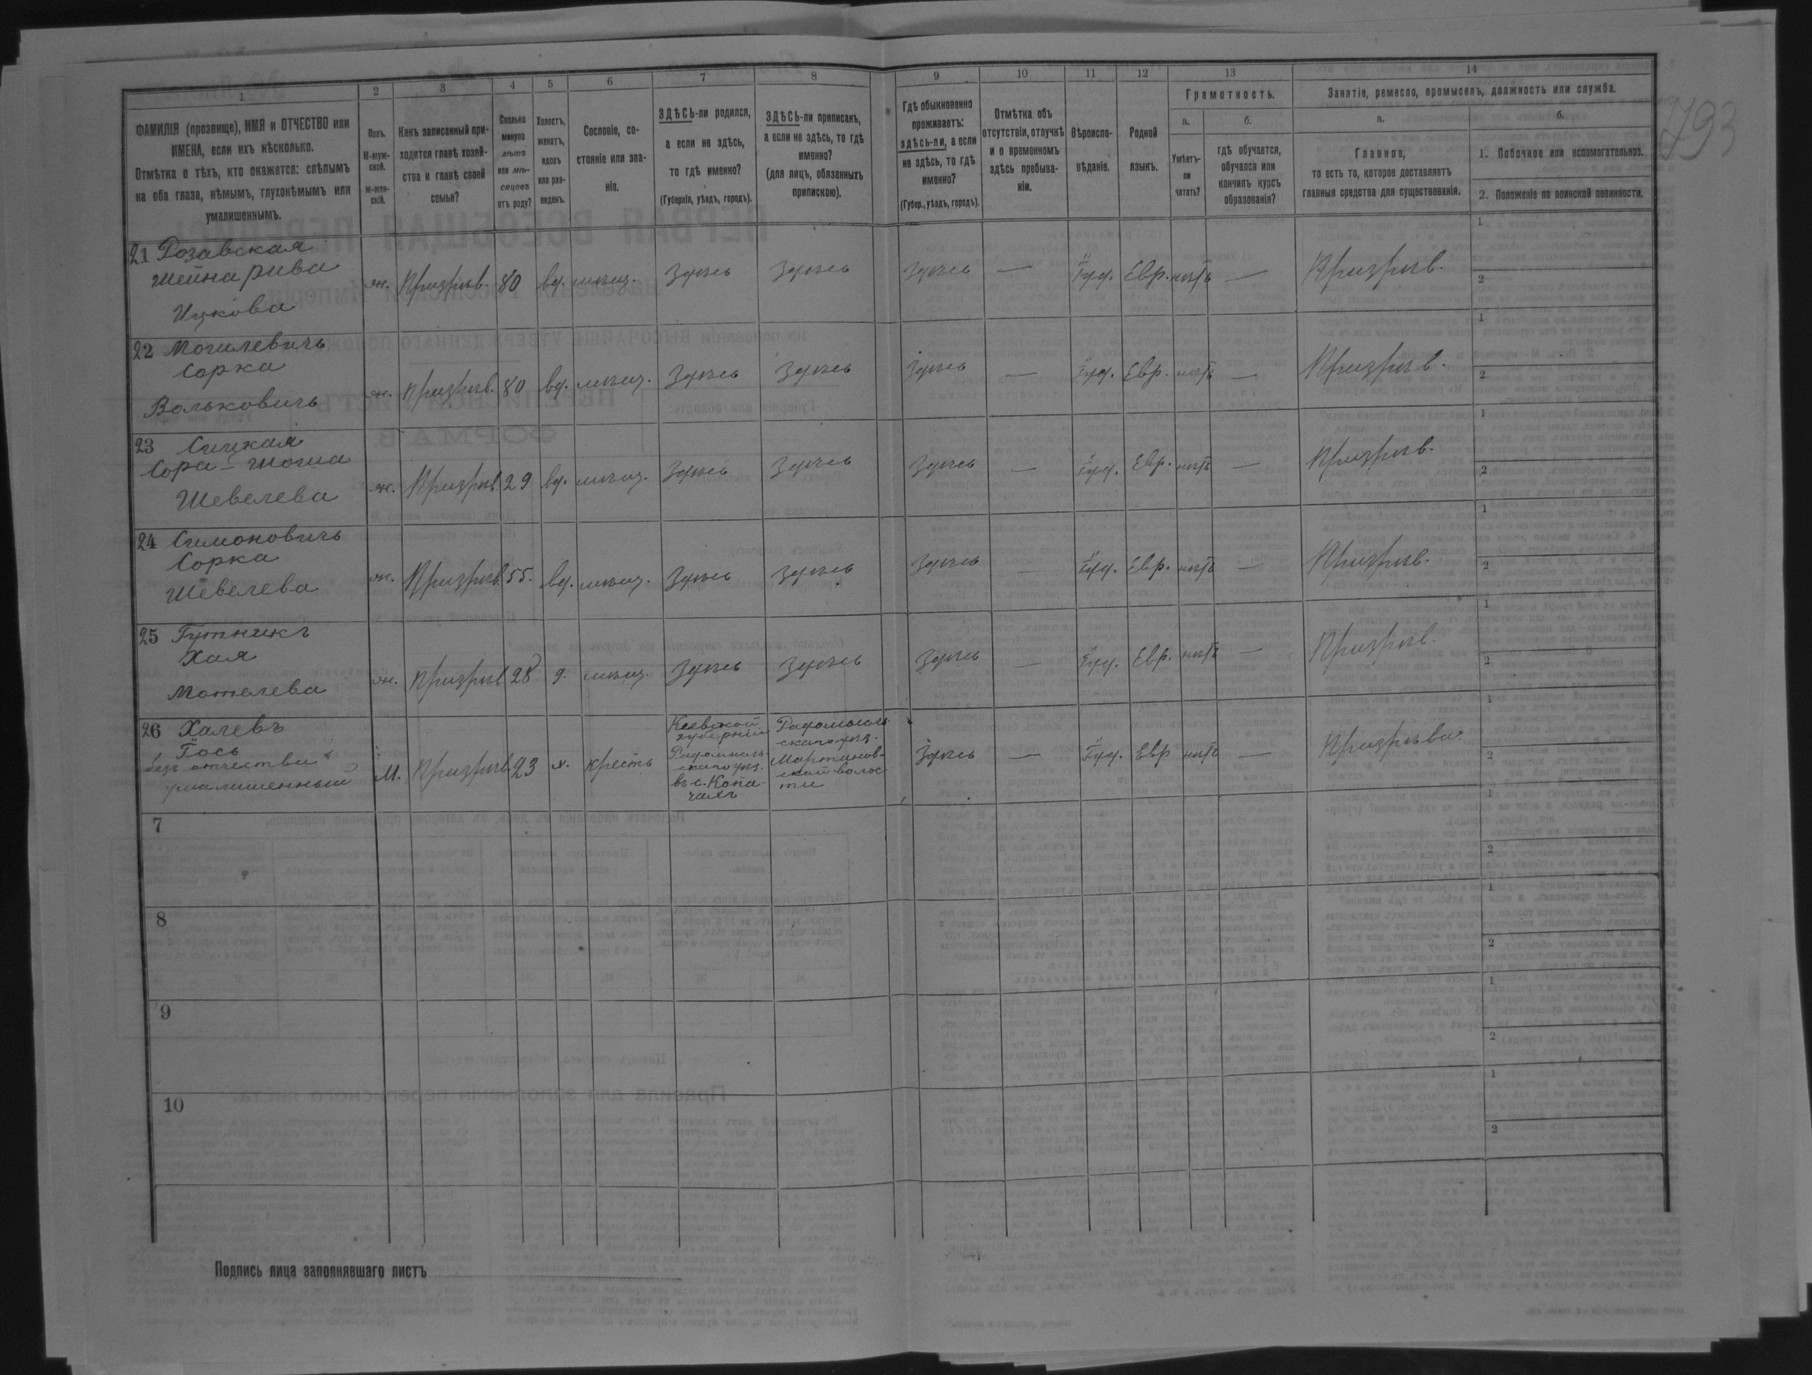 793
1
2
3
4
5
6
7
8
9
10
11
12
13
14
ФАМИЛІЯ (прозвище), ИМЯ и ОТЧЕСТВО или
ИМЕНА, если ихъ нѣсколько.
Отмѣтка о тѣхъ, кто окажется: слѣпымъ
на оба глаза, нѣмымъ, глухонѣмымъ или
умалишеннымъ.
Полъ.
М-муж-
ской.
Ж-жен-
скій.
Какъ записанный при-
ходится главѣ хозяй-
ства и главѣ своей
семьи?
Сколько
минуло
лѣтъ
или мѣ-
сяцевъ
отъ роду?
Холостъ,
женатъ,
вдовъ
или раз-
веденъ.
Сословіе, со-
стояніе или зва-
ніе.
ЗДѢСЬ-ли родился,
а если не здѣсь,
то гдѣ именно?
(Губернія, уѣздъ, городъ).
ЗДѢСЬ-ли приписанъ,
а если не здѣсь, то гдѣ
именно?
(для лицъ, обязанныхъ
припискою).
Гдѣ обыкновенно
проживаетъ:
здѣсь-ли, а если
не здѣсь, то гдѣ
именно?
(Губер., уѣздъ, городъ).
Отмѣтка объ
отсутствіи, отлучкѣ
и о временномъ
здѣсь пребыва-
ніи.
Вѣроиспо-
вѣданіе.
Родной
языкъ.
Грамотность.
а.
Умѣетъ-
ли
читать?
б.
гдѣ обучается,
обучался или
кончилъ курсъ
образованія?
Занятіе, ремесло, промыселъ, должность или служба.
а.
Главное,
то есть то, которое доставляетъ
главныя средства для существованія.
б.
1. Побочное или вспомогательное.
2. Положеніе по воинской повинности.
21 Розавская
Шейна рива
Ицкова
ж. Призрѣв. 80 вд. мѣщ. Здѣсь Здѣсь Здѣсь — Іуд. Евр. нѣтъ — Призрѣв.
1
2
22 Могилевичъ
Сорка
Вольковичъ
ж. Призрѣв. 80 вд. мѣщ. Здѣсь Здѣсь Здѣсь — Іуд. Евр. нѣтъ — Призрѣв.
1
2
23
Сора-
Шевелева
ж. Призрѣв. 29 вд. мѣщ. Здѣсь Здѣсь Здѣсь — Іуд. Евр. нѣтъ — Призрѣв.
1
2
24 Симоновичъ
Сорка
Шевелева
ж. Призрѣв. 55. вд. мѣщ. Здѣсь Здѣсь Здѣсь — Іуд. Евр. нѣтъ — Призрѣв.
1
2
25 Гутникъ
Хая
Мотелева
ж. Призрѣв. 28 д. мѣщ. Здѣсь Здѣсь Здѣсь — Іуд. Евр. нѣтъ — Призрѣв.
1
2
26 Халевъ
Іось
безъ отчества
умалишенный
М. Призрѣв. 23 х. крестъ
Кіевской
губерніи
Радомысль-
скаго уѣз.
въ с. Копа-
чахъ
Радомысль-
скаго уѣз.
Мартинов-
ской волос-
ти
Здѣсь — Іуд. Евр нѣтъ — Призрѣва.
1
2
7
1
2
8
1
2
9
1
2
10
1
2
Подпись лица заполнявшаго листъ